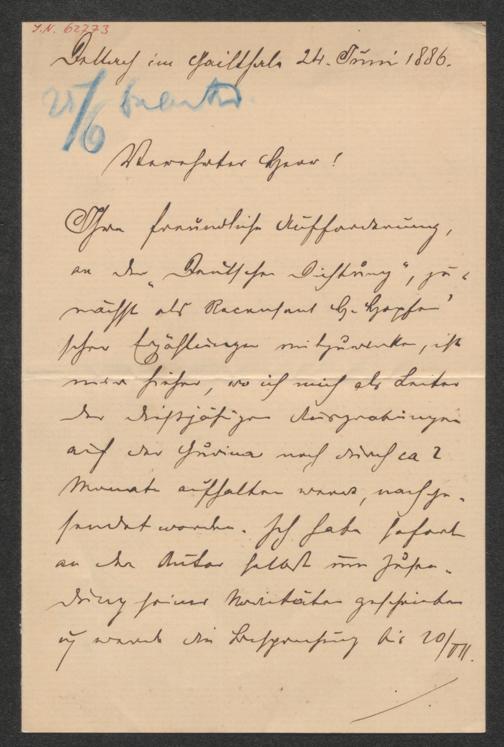 I.N. 62773
Dellach im Gailthale 24. Juni 1886.
25/6
Verehrter Herr!
Ihre freundliche Aufforderung,
an der „Deutschen Dichtung", zu-
nächst als Recensent H. Hopfen'
scher Erzählungen mitzuwirken, ist
mir hieher, wo ich mich als Leiter
der dießjährigen Ausgrabungen
auf der Gurina noch durch ca 2
Monate aufhalten werde, nachge-
sendet worden. Ich habe sofort
an den Autor selbst um Zusen-
dung seiner Novitäten geschrieben
u werde die Besprechung bis 20/VII.